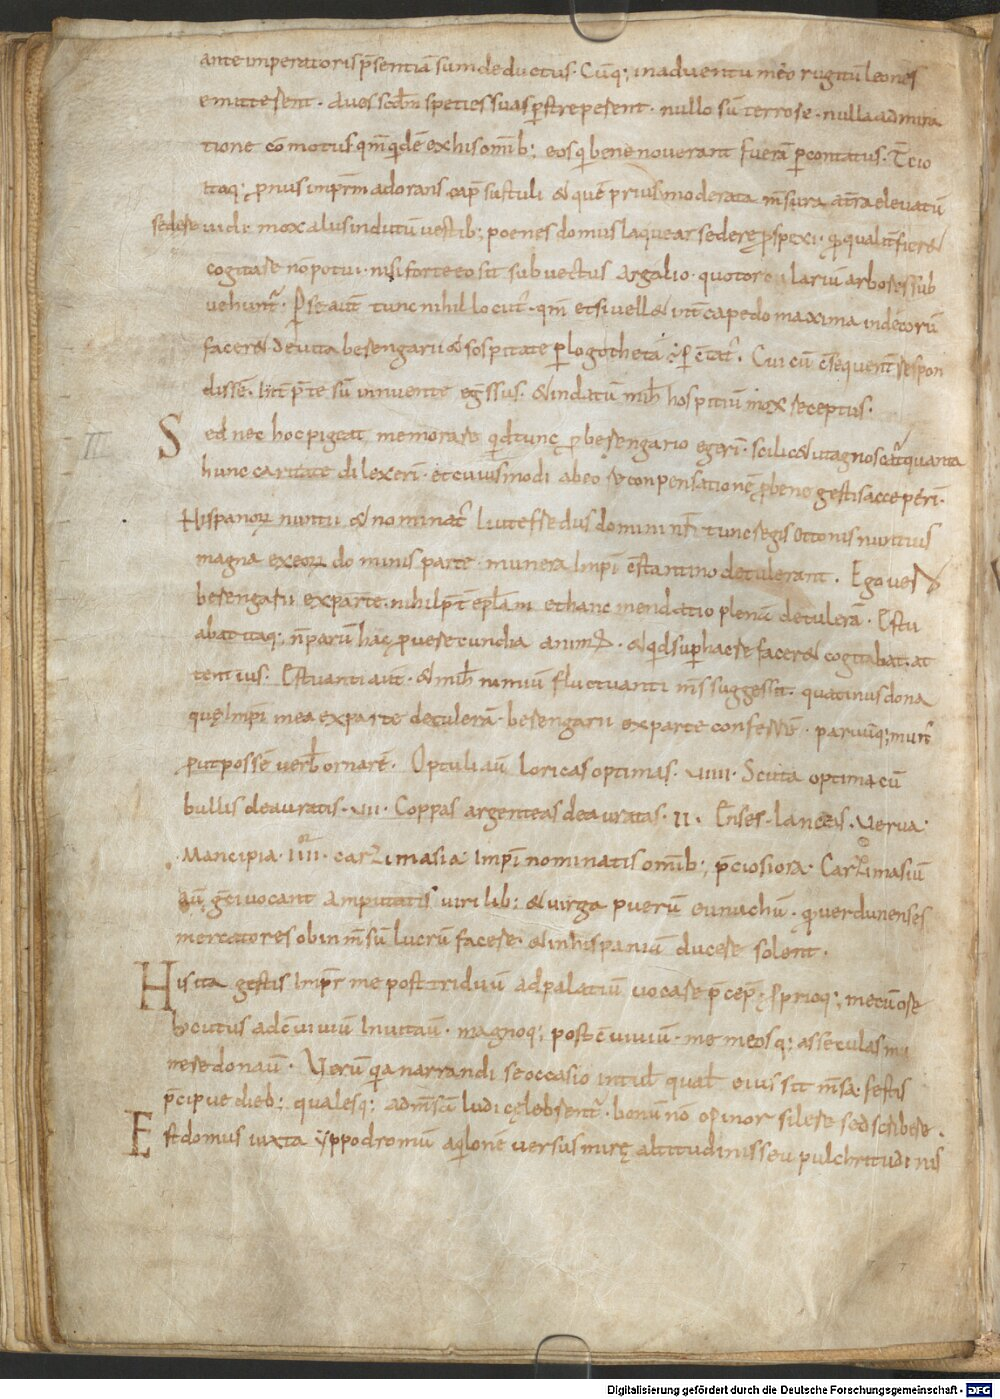 ante imperatoris p̄sentiā sum deductus. Cūq; in adventu meo rugitū leones
emitterent. aves scd̄m speties suas ꝑstreperent. nullo sū terrore. nulla admira
tione cōmotus qm̄ qidē ex his omīb; eos qi bene noverant fuerā ꝑcontatus. T̄cio
itaq; ꝓnus impr̄m adorans cap̄ sustuli & quē prius moderata m̄sura a t̄ra elevatū
sedere vidi. mox aliis indutū vestib; poenes domus laquear sedere ꝓspexi. qualit̄ fier&
cogitare nō potui. nisi forte eo sit subvectus argalio. quo torcularium arbores sub
vehunt᷒. Per se aut̄ tunc nihil locut᷒. qm̄ etsi vell& int̄capedo maxima indecorū
facer& de vita berengarii & sospitate ꝑ logothetā
Cui cū c̄sequent̄ respon
dissē. int̄p̄te sū innuente egressus. & in datū mih̄ hospitiū mox receptus.
II
Sed nec hoc pigeat memorare qid tunc ꝓ berengario egeri. scilic& ut agnoscat᷒ quanta
hunc caritate dilexeri. et cuiusmodi ab eo
conpensationē ꝓ bene gestis acceperi.
Hispanoꝝ nuntii & nominat᷒ liutefredus domini nr̄i tunc regis ottonis nuntius
magna ex eoꝝ dominis parte munera Impr̄i c̄stantino detulerant. Ego vero
berengarii ex parte. nihil p̄t eplam et hanc mendatio plenā detulerā. Estu
abat itaq; n̄ parū hac ꝓ verecundia animus. & qid suꝑ hac re facer& cogitabat at
tentius. Estuanti aut̄. & mih̄ nimiū fluctuanti m̄s suggessit. quatinus dona
quę Impr̄i mea ex parte detulerā. berengarii ex parte
parvūq; mun᷒
ꝓut possē verb̄ ornarē. Optuli aū loricas optimas. viiii. Scuta optima cū
bullis deauratis. vii. Coppas argenteas deauratas. ii. Enses. lanceas. verua.
Mancipia. iiii. carzimasia. Impr̄i nominatis omīb; p̄ciosiora. Carzimasiū
aū greci vocant amputatis virilib; & virga puerū eunuchū. qi verdunenses
mercatores ob inm̄sū lucrū facere. & in hispaniā ducere solent.
His ita gestis Impr̄ me post triduū ad palatiū vocare p̄cep̄. ꝓprioq; mecū ore
locutus ad c̄viviū Invitav̄. magnoq; post c̄viviū. me meosq; asseculas mu
nere donav̄. Verū qia narrandi se occasio intul̄ qual̄ eius sit m̄sa. festis
p̄cipue dieb; qualesq; ad m̄sā ludi cęlebrent᷒. bonū nō opinor silere sed scribere.
Est domus iuxta yppodromū aqilonē versus mirę altitudinis seu pulchritudinis
Digitalisierung gefördert durch die Deutsche Forschungsgemeinschaft - DFG